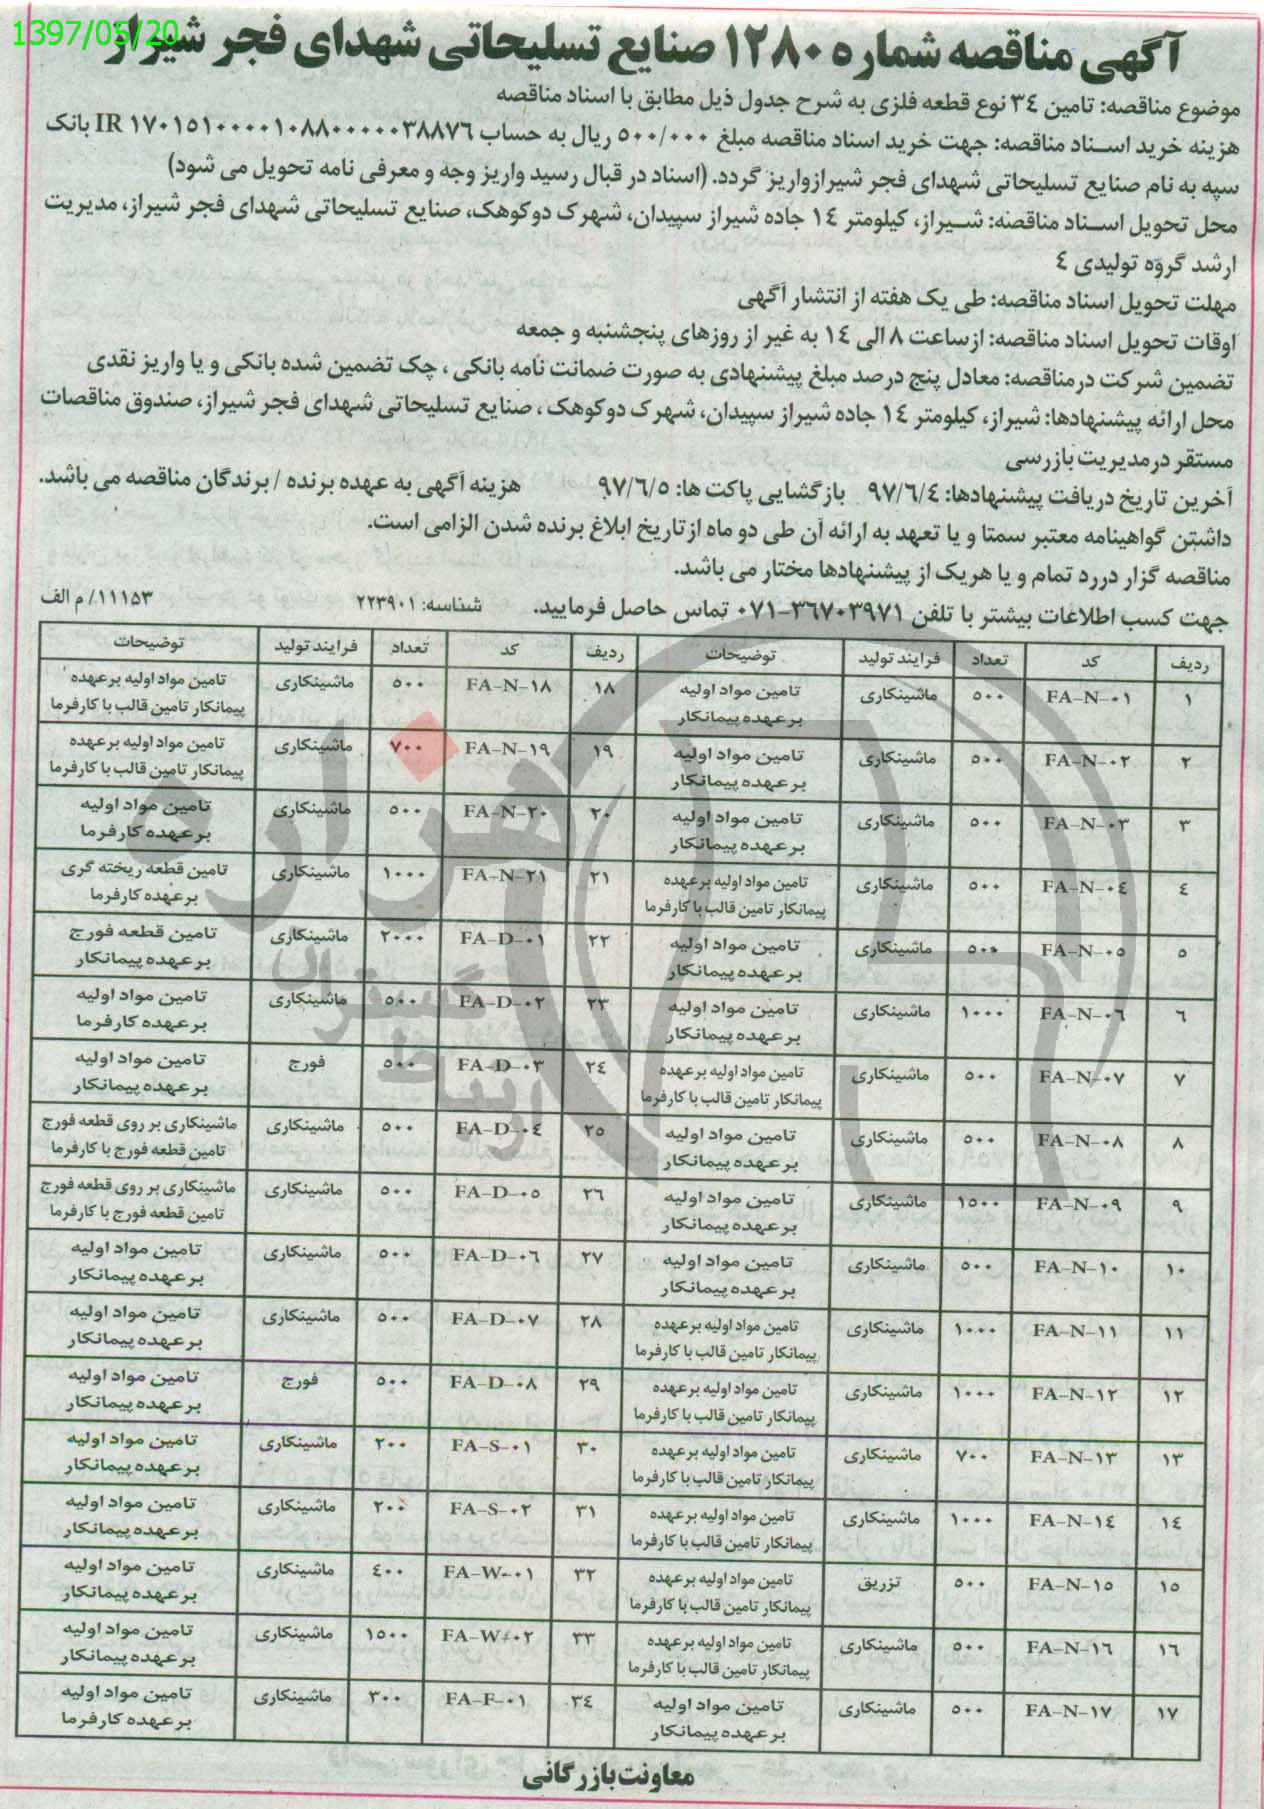 1397/05/20
آگهی مناقصه شماره ۱۲۸۰ صنایع تسلیحاتی شهدای فجر شیراز
موضوع مناقصه: تامین ۳۴ نوع قطعه فلزی به شرح جدول ذیل مطابق با اسناد مناقصه
هزینه خرید اسناد مناقصه: جهت خرید اسناد مناقصه مبلغ ۵۰۰/۰۰۰ ریال به حساب IR ۱۷۰۱۵۱۰۰۰۰۱۰۸۸۰۰۰۰۰۳۸۸۷۶ بانک
سپه به نام صنایع تسلیحاتی شهدای فجر شیرازواریز گردد. (اسناد در قبال رسید واریز وجه و معرفی نامه تحویل می شود)
محل تحویل اسناد مناقصه: شیراز، کیلومتر ۱۴ جاده شیراز سپیدان، شهرک دوکوهک، صنایع تسلیحاتی شهدای فجر شیراز، مدیریت
ارشد گروه تولیدی ۴
مهلت تحویل اسناد مناقصه: طی یک هفته از انتشار آگهی
اوقات تحویل اسناد مناقصه: ازساعت ۸ الی ۱۴ به غیر از روزهای پنجشنبه و جمعه
تضمین شرکت درمناقصه: معادل پنج درصد مبلغ پیشنهادی به صورت ضمانت نامه بانکی ، چک تضمین شده بانکی و یا واریز نقدی
محل ارائه پیشنهادها: شیراز، کیلومتر ۱۴ جاده شیراز سپیدان، شهرک دوکوهک ، صنایع تسلیحاتی شهدای فجر شیراز، صندوق مناقصات
مستقر درمدیریت بازرسی
آخرین تاریخ دریافت پیشنهادها: ۹۷/۶/۴ بازگشایی پاکت ها: ۹۷/۶/۵ هزینه آگهی به عهده برنده / برندگان مناقصه می باشد.
داشتن گواهینامه معتبر سمتا و یا تعهد به ارائه آن طی دو ماه ازتاریخ ابلاغ برنده شدن الزامی است.
مناقصه گزار دررد تمام و یا هریک از پیشنهادها مختار می باشد.
جهت کسب اطلاعات بیشتر با تلفن ۳۶۷۰۳۹۷۱-۰۷۱ تماس حاصل فرمایید. شناسه: ۲۲۳۹۰۱ ۱۱۱۵۳/ م الف
ردیف کد تعداد فرایند تولید توضیحات ردیف کد تعداد فرایند تولید توضیحات
۱ FA-N-۰۱ ۵۰۰ ماشینکاری تامین مواد اولیه برعهده پیمانکار ۱۸ FA-N-۱۸ ۵۰۰ ماشینکاری تامین مواد اولیه برعهده پیمانکار تامین قالب با کارفرما
۲ FA-N-۰۲ ۵۰۰ ماشینکاری تامین مواد اولیه برعهده پیمانکار ۱۹ FA-N-۱۹ ۷۰۰ ماشینکاری تامین مواد اولیه برعهده پیمانکار تامین قالب با کارفرما
۳ FA-N-۰۳ ۵۰۰ ماشینکاری تامین مواد اولیه برعهده پیمانکار ۲۰ FA-N-۲۰ ۵۰۰ ماشینکاری تامین مواد اولیه برعهده کارفرما
۴ FA-N-۰۴ ۵۰۰ ماشینکاری تامین مواد اولیه برعهده پیمانکار تامین قالب با کارفرما ۲۱ FA-N-۲۱ ۱۰۰۰ ماشینکاری تامین قطعه ریخته گری برعهده کارفرما
۵ FA-N-۰۵ ۵۰۰ ماشینکاری تامین مواد اولیه برعهده پیمانکار ۲۲ FA-D-۰۱ ۲۰۰۰ ماشینکاری تامین قطعه فورج برعهده پیمانکار
۶ FA-N-۰۶ ۱۰۰۰ ماشینکاری تامین مواد اولیه برعهده پیمانکار ۲۳ FA-D-۰۲ ۵۰۰ ماشینکاری تامین مواد اولیه برعهده کارفرما
۷ FA-N-۰۷ ۵۰۰ ماشینکاری تامین مواد اولیه برعهده پیمانکار تامین قالب با کارفرما ۲۴ FA-D-۰۳ ۵۰۰ فورج تامین مواد اولیه برعهده پیمانکار
۸ FA-N-۰۸ ۵۰۰ ماشینکاری تامین مواد اولیه برعهده پیمانکار ۲۵ FA-D-۰۴ ۵۰۰ ماشینکاری ماشینکاری بر روی قطعه فورج تامین قطعه فورج با کارفرما
۹ FA-N-۰۹ ۱۵۰۰ ماشینکاری تامین مواد اولیه برعهده پیمانکار ۲۶ FA-D-۰۵ ۵۰۰ ماشینکاری ماشینکاری بر روی قطعه فورج تامین قطعه فورج با کارفرما
۱۰ FA-N-۱۰ ۵۰۰ ماشینکاری تامین مواد اولیه برعهده پیمانکار ۲۷ FA-D-۰۶ ۵۰۰ ماشینکاری تامین مواد اولیه برعهده پیمانکار
۱۱ FA-N-۱۱ ۱۰۰۰ ماشینکاری تامین مواد اولیه برعهده پیمانکار تامین قالب با کارفرما ۲۸ FA-D-۰۷ ۵۰۰ ماشینکاری تامین مواد اولیه برعهده پیمانکار
۱۲ FA-N-۱۲ ۱۰۰۰ ماشینکاری تامین مواد اولیه برعهده پیمانکار تامین قالب با کارفرما ۲۹ FA-D-۰۸ ۵۰۰ فورج تامین مواد اولیه برعهده پیمانکار
۱۳ FA-N-۱۳ ۷۰۰ ماشینکاری تامین مواد اولیه برعهده پیمانکار تامین قالب با کارفرما ۳۰ FA-S-۰۱ ۲۰۰ ماشینکاری تامین مواد اولیه برعهده پیمانکار
۱۴ FA-N-۱۴ ۱۰۰۰ ماشینکاری تامین مواد اولیه برعهده پیمانکار تامین قالب با کارفرما ۳۱ FA-S-۰۲ ۲۰۰ ماشینکاری تامین مواد اولیه برعهده پیمانکار
۱۵ FA-N-۱۵ ۵۰۰ تزریق تامین مواد اولیه برعهده پیمانکار تامین قالب با کارفرما ۳۲ FA-W-۰۱ ۴۰۰ ماشینکاری تامین مواد اولیه برعهده پیمانکار
۱۶ FA-N-۱۶ ۵۰۰ ماشینکاری تامین مواد اولیه برعهده پیمانکار تامین قالب با کارفرما ۳۳ FA-W-۰۲ ۱۵۰۰ ماشینکاری تامین مواد اولیه برعهده پیمانکار
۱۷ FA-N-۱۷ ۵۰۰ ماشینکاری تامین مواد اولیه برعهده پیمانکار ۳۴ FA-F-۰۱ ۳۰۰ ماشینکاری تامین مواد اولیه برعهده کارفرما
معاونت بازرگانی